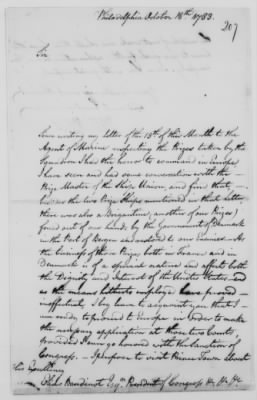 Philadelphia October 18th 1783.
207
Sir
Since writing my letter of the 13th of this Month to the
Agent of Marine respecting the Prizes taken by the
Squadron I had the honor to command in Europe
I have seen and had some conversation with the
Prize Master of the Ship Union, and find that,
besides the two Prize Ships mentioned in that letter,
there was also a Brigantine, another of our Prizes,
forced out of our hands by the Government of Denmark
in the Port of Bergen and restored to our Enemies. As
the business of those Prizes both in France and in
Denmark is of a national nature and affects both
the Dignity and Interest of the United States, and
as the means hitherto employed have proved
ineffectual, I beg leave to acquaint you that I
am ready to proceed to Europe in order to make
the necessary application at those two Courts,
provided I can go honored with the sanction of
Congress. I purpose to visit Prince Town about
His Excellency
Elias Boudinot Esqr. President of Congress &c &c &c